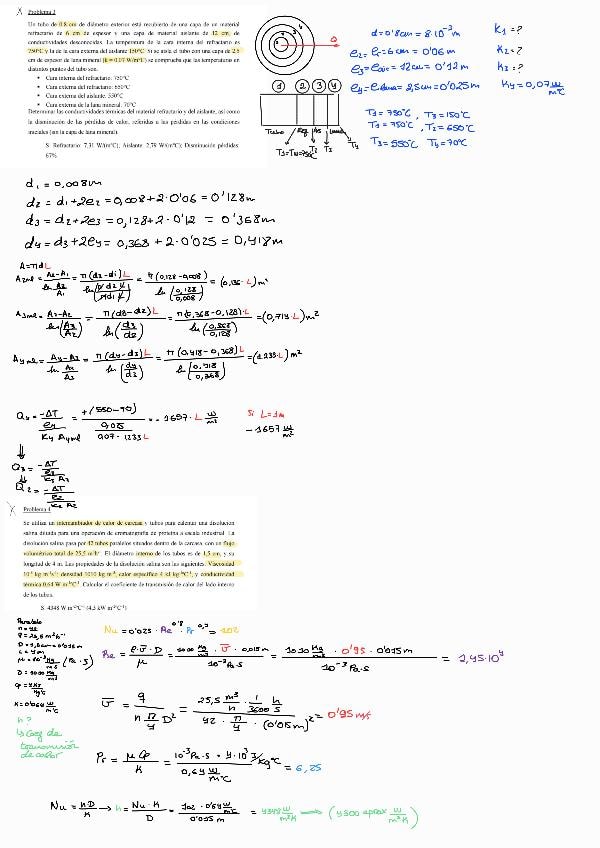 Problema 3
Un tubo de 0.8 cm de diámetro externo está recubierto de una capa de un material
refractario de 6 cm de espesor y una capa de material aislante de 12 cm, de
conductividades desconocidas. La temperatura de la cara interna del refractario es
750°C y la de la cara externa del aislante 150°C. Si se aísla el tubo con una capa de 2.5
cm de espesor de lana mineral (k = 0.07 W/m°C) se comprueba que las temperaturas en
distintos puntos del tubo son:
• Cara interna del refractario: 750°C
• Cara externa del refractario: 650°C
• Cara externa del aislante: 550°C
• Cara externa de la lana mineral: 70°C
Determinar las conductividades térmicas del material refractario y del aislante, así como
la disminución de las pérdidas de calor, referidas a las pérdidas en las condiciones
iniciales (sin la capa de lana mineral).
S: Refractario: 7,31 W/(m°C); Aislante: 2,79 W/(m°C); Disminución pérdidas:
67%
d = 0'8cm = 8·10⁻³ m
e₂ = er = 6cm = 0'06m
e₃ = = 12cm = 0'12m
e₄ = = 2,5cm = 0'025m
K₁ = ?
K₂ = ?
K₃ = ?
K₄ = 0,07 W/m°C
1 2 3 4
Tubo
T₁ = 750°C, T₃ = 150°C
T₁ = 750°C, T₂ = 650°C
T₃ = 550°C T₄ = 70°C
d₁ = 0,008m
d₂ = d₁ + 2e₂ = 0,008 + 2·0'06 = 0'128m
d₃ = d₂ + 2e₃ = 0,128 + 2·0'12 = 0'368m
d₄ = d₃ + 2e₄ = 0,368 + 2·0'025 = 0,418m
A = π d L
A₂ml = (A₂-A₁)/ln(A₂/A₁) = π(d₂-d₁)L/ln(π d₂ L/π d₁ L) = π(0,128-0,008)/ln(0,128/0,008) = (0,136·L) m²
A₃ml = (A₃-A₂)/ln(A₃/A₂) = π(d₃-d₂)L/ln(d₃/d₂) = π(0,368-0,128)·L/ln(0,368/0,128) = (0,714·L) m²
A₄ml = (A₄-A₃)/ln(A₄/A₃) = π(d₄-d₃)L/ln(d₄/d₃) = π(0,418-0,368)L/ln(0,418/0,368) = (1.233·L) m²
Q₄ = -ΔT/(e₄/K₄ A₄ml) = +(550-70)/(0,025/0,07·1233·L) = -1657·L W/m²
Si L = 1m
-1657 W/m²
Q₃ = -ΔT/(e₃/K₃ A₃)
Q₂ = -ΔT/(e₂/K₂ A₂)
Problema 4
Se utiliza un intercambiador de calor de carcasa y tubos para calentar una disolución
salina diluida para una operación de cromatografía de proteína a escala industrial. La
disolución salina pasa por 42 tubos paralelos situados dentro de la carcasa con un flujo
volumétrico total de 25,5 m³h⁻¹. El diámetro interno de los tubos es de 1,5 cm, y su
longitud de 4 m. Las propiedades de la disolución salina son las siguientes: Viscosidad
10⁻³ kg m⁻¹s⁻¹; densidad 1010 kg m⁻³, calor específico 4 kJ kg⁻¹°C⁻¹, y conductividad
térmica 0,64 W m⁻¹°C⁻¹. Calcular el coeficiente de transmisión de calor del lado interno
de los tubos.
S. 4348 W m⁻²°C⁻¹ (4,3 kW m⁻²°C⁻¹)
Paralelo
n = 42
q = 25,5 m³h⁻¹
D = 1,5cm = 0'015m
L = 4m
(Pa·S)
K = 0'64 W/m°C
h?
↳ Coef de
transmisión
de calor
Nu = 0'023 · Re^0'8 · Pr = 102
Re = ρ·v̄·D/μ = 1010 Kg/m³ · v̄ · 0,015m/10⁻³ Pa·S = 1010 Kg/m³ · 0'95 · 0'015m/10⁻³ Pa·S = 1,45·10⁴
v̄ = q/(n π/4 D²) = 25,5 m³/h · 1/3600 h/s/(42 · π/4 · (0'015m)²) = 0'95 m/s
Pr = μ Cp/K = 10⁻³ Pa·S · 4·10³ J/kg°C/0,64 W/m°C = 6,25
Nu = hD/K → h = Nu·K/D = 102·0'64 W/m°C/0'015m = 4348 W/m²K ⟶ (4300 aprox W/m²K)